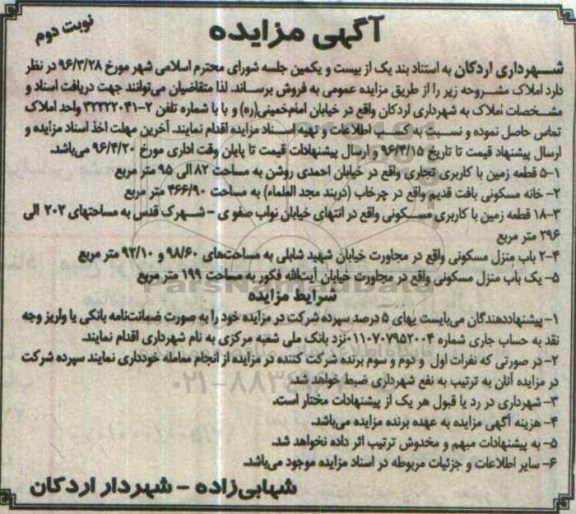 نوبت دوم
آگهی مزایده
شهرداری اردکان به استناد بند یک از بیست و یکمین جلسه شورای محترم اسلامی شهر مورخ ۹۶/۳/۲۸ در نظر
دارد املاک مشروحه زیر را از طریق مزایده عمومی به فروش برساند. لذا متقاضیان می‌توانند جهت دریافت اسناد و
مشخصات املاک به شهرداری اردکان واقع در خیابان امام‌خمینی(ره) و یا با شماره تلفن ۲-۳۲۲۲۲۰۴۱ واحد املاک
تماس حاصل نموده و نسبت به کسب اطلاعات و تهیه اسناد مزایده اقدام نمایند. آخرین مهلت اخذ اسناد مزایده و
ارسال پیشنهاد قیمت تا تاریخ ۹۶/۴/۱۵ و ارسال پیشنهادات قیمت تا پایان وقت اداری مورخ ۹۶/۴/۲۰ می‌باشد.
۱-۵ قطعه زمین با کاربری تجاری واقع در خیابان احمدی روشن به مساحت ۸۲ الی ۹۵ متر مربع
۲- خانه مسکونی بافت قدیم واقع در چرخاب (دربند مجد العلماء) به مساحت ۴۶۶/۹۰ متر مربع
۳-۱۸ قطعه زمین با کاربری مسکونی واقع در انتهای خیابان نواب صفوی – شهرک قدس به مساحتهای ۲۰۲ الی
۲۹۶ متر مربع
۴-۲ باب منزل مسکونی واقع در مجاورت خیابان شهید شابلی به مساحت‌های ۹۸/۶۰ و ۹۲/۱۰ متر مربع
۵- یک باب منزل مسکونی واقع در مجاورت خیابان آیت‌الله فکور به مساحت ۱۹۹ متر مربع
شرایط مزایده
۱- پیشنهاددهندگان می‌بایست بهای ۵ درصد سپرده شرکت در مزایده خود را به صورت ضمانت‌نامه بانکی یا واریز وجه
نقد به حساب جاری شماره ۰۱۱۰۷۰۷۹۵۲۰۰۴ نزد بانک ملی شعبه مرکزی به نام شهرداری اقدام نمایند.
۲- در صورتی که نفرات اول و دوم و سوم برنده شرکت کننده در مزایده از انجام معامله خودداری نمایند سپرده شرکت
در مزایده آنان به ترتیب به نفع شهرداری ضبط خواهد شد.
۳- شهرداری در رد یا قبول هر یک از پیشنهادات مختار است.
۴- هزینه آگهی مزایده به عهده برنده مزایده می‌باشد.
۵- به پیشنهادات مبهم و مخدوش ترتیب اثر داده نخواهد شد.
۶- سایر اطلاعات و جزئیات مربوطه در اسناد مزایده موجود می‌باشد.
شهابی‌زاده – شهردار اردکان